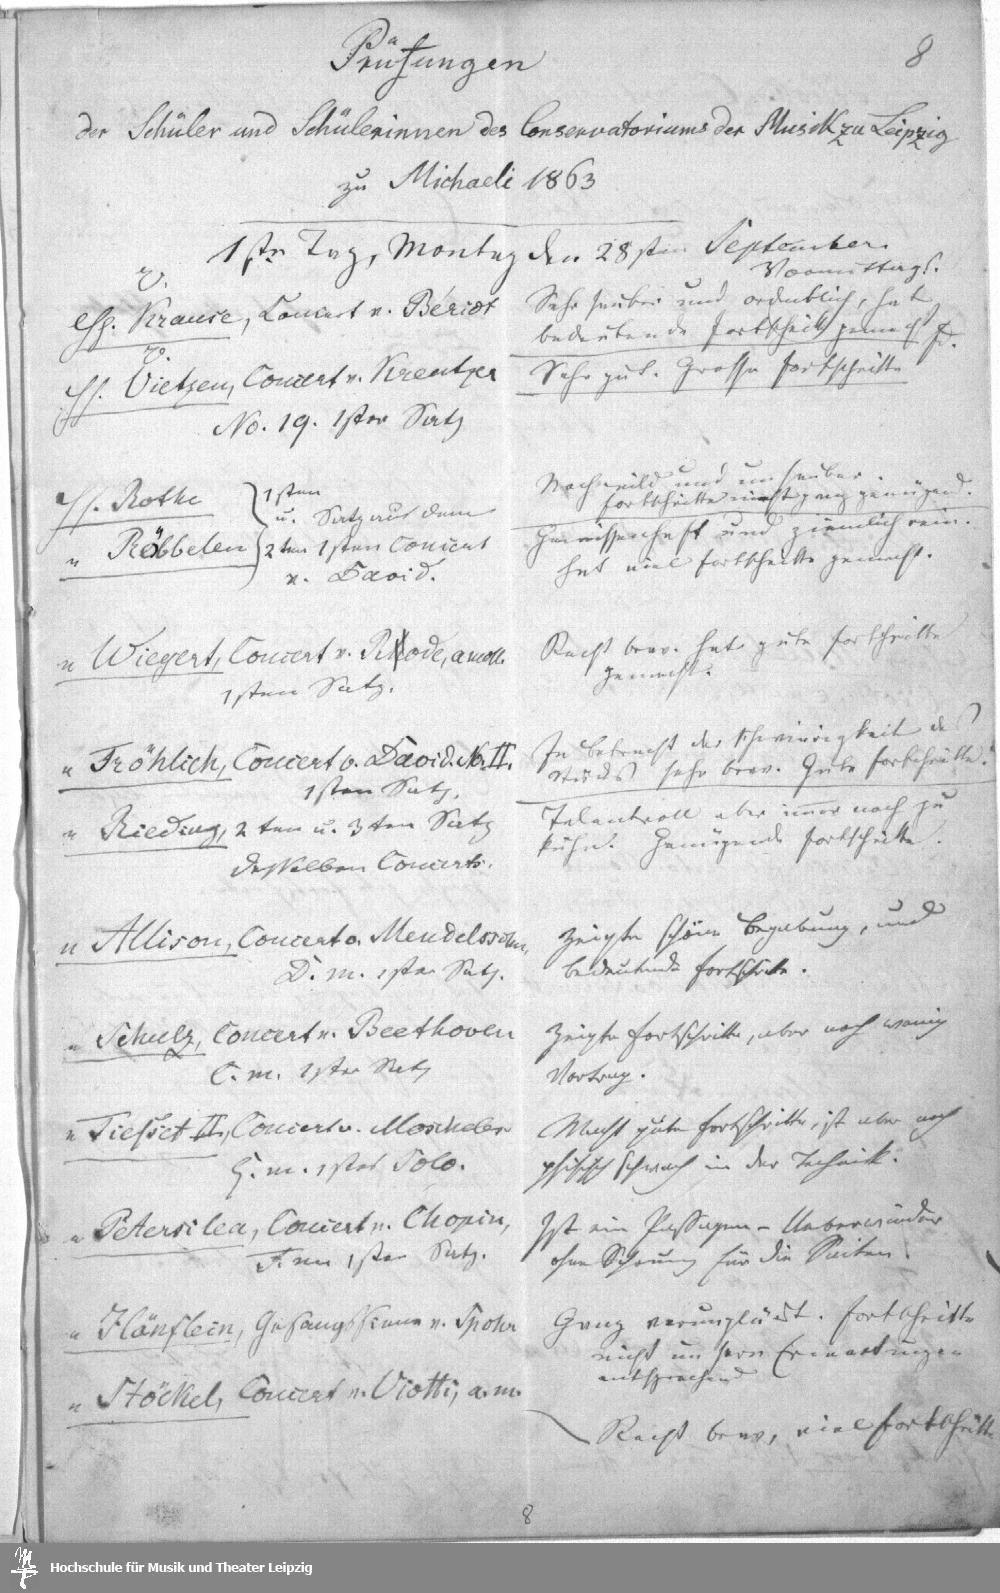 Prüfungen
8
der Schüler und Schülerinnen des Conservatoriums der Musik zu Leipzig
zu Michaeli 1863
1ster Tag, Montag den 28sten September
Vormittags.
v.
HH. Krause, Concert v. Beriot
Sehr sauber und ordentlich, hat
bedeutende Fortschritte gemacht
v.
HH. Vietzen, Concert v. Kreutzer
Sehr gut. Grosse Fortschritte
No. 19. 1ster Satz
HH. Rothe
1sten
u. Satz aus dem
Noch wild und unsauber.
Fortschritte nicht ganz genügend.
" Röbbelen
2ten 1sten Concert
v. David.
Gewissenhaft und ziemlich rein.
hat viel Fortschritte gemacht.
" Wiegert, Concert v. Rode, a moll.
1sten Satz.
Recht brav. hat gute Fortschritte
gemacht.
" Fröhlich, Concert v. David. No. II.
1sten Satz.
In Betracht der Schwierigkeit des
Stücks sehr brav. Gute Fortschritte.
" Rieding, 2ten u. 3ten Satz
desselben Concerts.
Talentvoll aber immer noch zu
kühn. Genügende Fortschritte.
" Allison, Concert v. Mendelssohn,
D. m. 1ster Satz.
Zeigte schöne Begabung, und
bedeutende Fortschritte.
" Schulz, Concert v. Beethoven
C. m. 1ster Satz
Zeigte Fortschritte, aber noch wenig
Vortrag.
" Tiefset II, Concert v. Moscheles
G. m. 1stes Solo.
Macht gute Fortschritte, ist aber noch
phisisch schwach in der Technik.
" Petersilea, Concert v. Chopin,
F. m 1ster Satz.
Ist ein Passagen-Ueberwinder
ohne Schonung für die Saiten.
" Hänflein, Gesangsscene v. Spohr
Ganz verunglückt. Fortschritte
nicht unsern Erwartungen
entsprechend
" Stöckel, Concert v. Viotti, a. m.
Recht brav, viel Fortschritte
8
Hochschule für Musik und Theater Leipzig